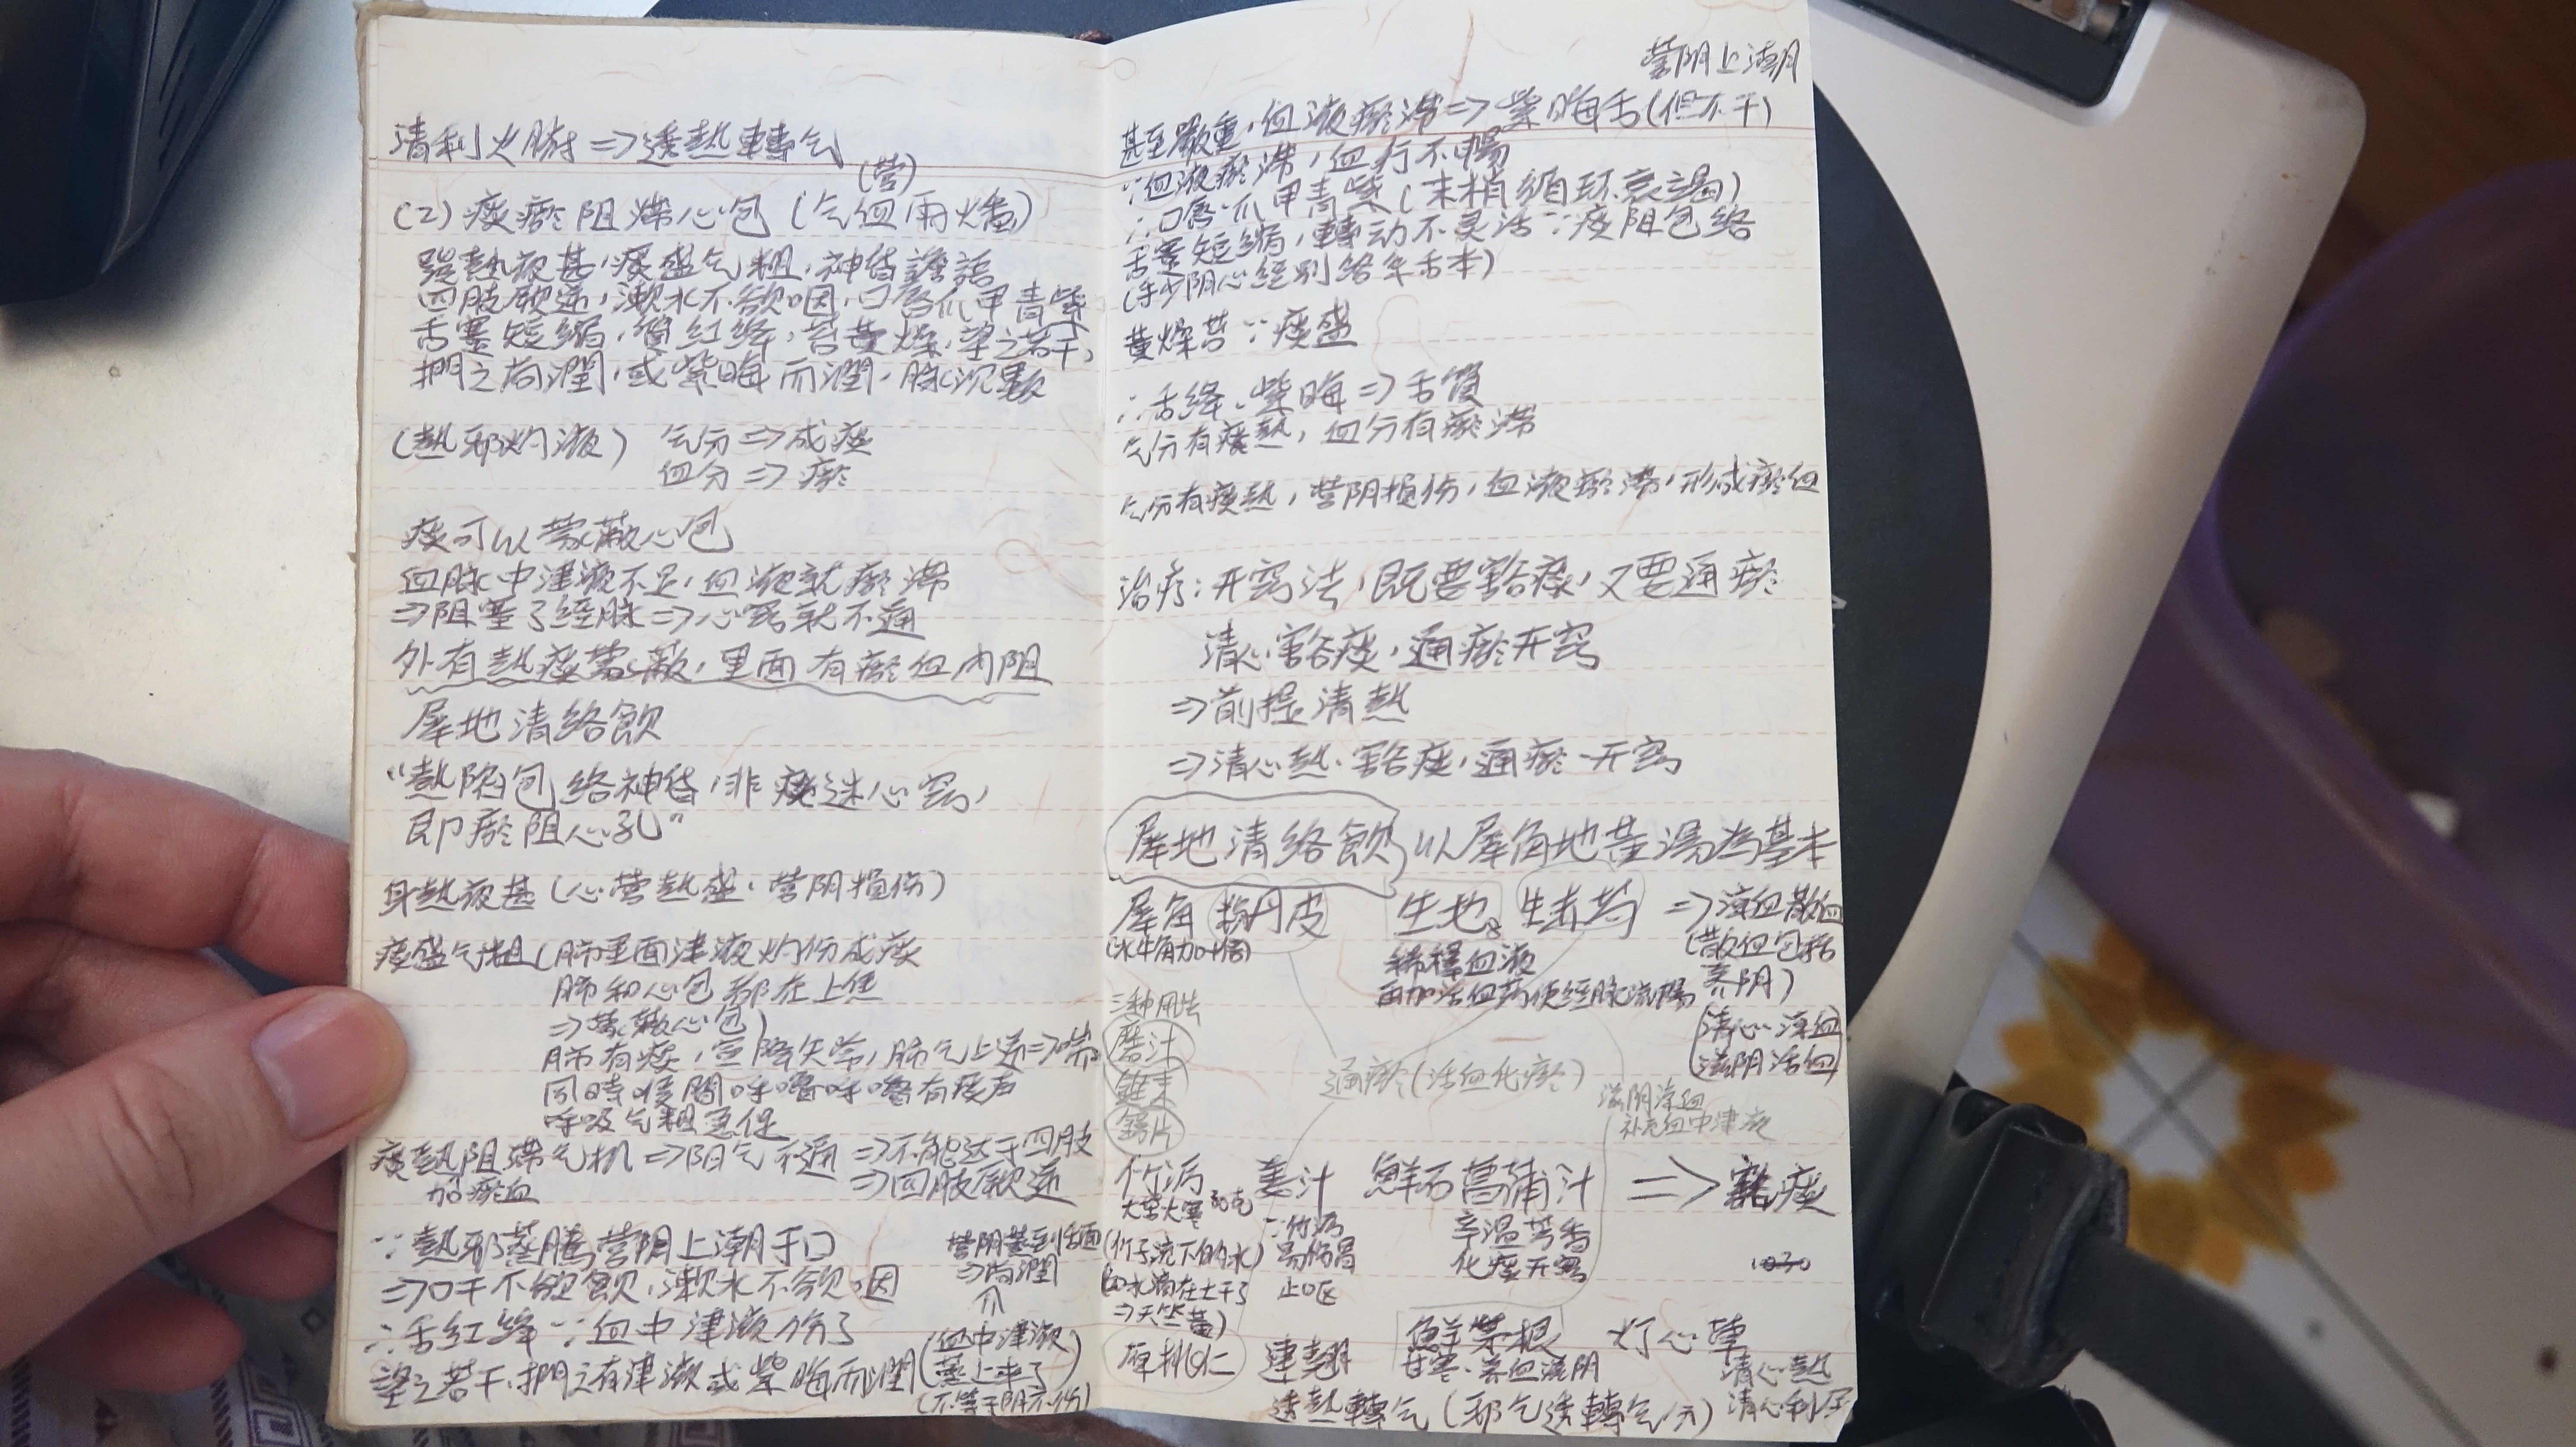 清利火腑⇒透熱轉气
(营)
(2)痰瘀阻滞心包(气血兩燔)
身熱夜甚,痰盛气粗,神昏譫語
四肢厥逆,漱水不欲咽,口唇爪甲青紫
舌蹇短縮,質紅绛,苔黄燥,望之若干,
捫之尚潤,或紫晦而潤,脉沉數
(熱邪灼液) 气分⇒成痰
血分⇒瘀
痰可以蒙蔽心包
血脉中津液不足,血液就瘀滞
⇒阻塞了經脉⇒心窍就不通
外有熱痰蒙蔽,里面有瘀血内阻
犀地清络飲
“熱陷包络神昏,非痰迷心窍,
即瘀阻心孔”
身熱夜甚(心营熱盛,营阴損伤)
痰盛气粗(肺里面津液灼伤成痰
肺和心包都在上焦
⇒蒙蔽心包)
肺有痰,宣降失常,肺气上逆⇒喘
同時喉間呼嚕呼嚕有痰声
呼吸气粗急促
痰熱阻滞气机⇒阳气不通⇒不能达于四肢
加瘀血 ⇒四肢厥逆
∵熱邪蒸腾营阴上潮于口
⇒口干不欲飲,漱水不欲咽
∴舌红绛∵血中津液伤了
望之若干,捫之有津液或紫晦而潤
营阴蒸到舌面
⇒尚潤
⇑
(血中津液
蒸上来了)
(不等于阴不伤)
营阴上潮
甚至嚴重,血液瘀滞⇒紫晦舌(但不干)
∵血液瘀滞,血行不暢
∴口唇爪甲青紫(末梢循环衰竭)
舌蹇短縮,轉动不灵活∵痰阻包络
(手少阴心經别络系舌本)
黄燥苔∵痰盛
∴舌绛、紫晦⇒舌質
气分有痰熱,血分有瘀滞
气分有痰熱,营阴損伤,血液瘀滞,形成瘀血
治疗:开窍法,既要豁痰,又要通瘀
清心豁痰,通瘀开窍
⇒前提清熱
⇒清心熱、豁痰,通瘀开窍
犀地清络飲 以犀角地黄湯为基本
犀角 粉丹皮 生地 生赤芍 ⇒凉血散血
(水牛角加十倍)
稀釋血液
再加活血药使經脉流暢
(散血包括
养阴)
清心凉血
滋阴活血
三种用法
磨汁
锉末
镑片
通瘀(活血化瘀)
滋阴凉血
补充血中津液
竹沥 姜汁 鮮石菖蒲汁 ⇒豁痰
大苦大寒
(竹子流下的水)
如水滴在土干了
⇒天竺黄)
∵竹沥
易伤胃
止呕
辛温芳香
化痰开窍
原桃仁 連翹 鮮茅根 灯心草
甘寒、养血滋阴
清心熱
透熱轉气(邪气透轉气分) 清心利尿